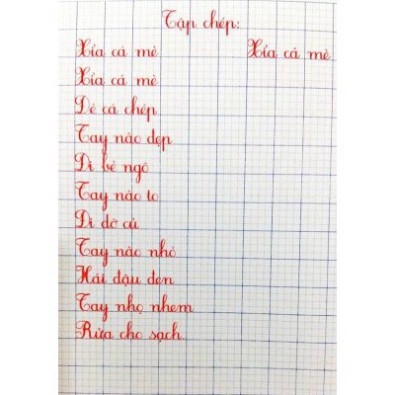 Tập chép:
Xỉa cá mè Xỉa cá mè
Xỉa cá mè
Dé cá chép
Tay nào đẹp
Đi bẻ ngô
Tay nào to
Đi dỡ củ
Tay nào nhỏ
Hái đậu đen
Tay nhọ nhem
Rửa cho sạch.